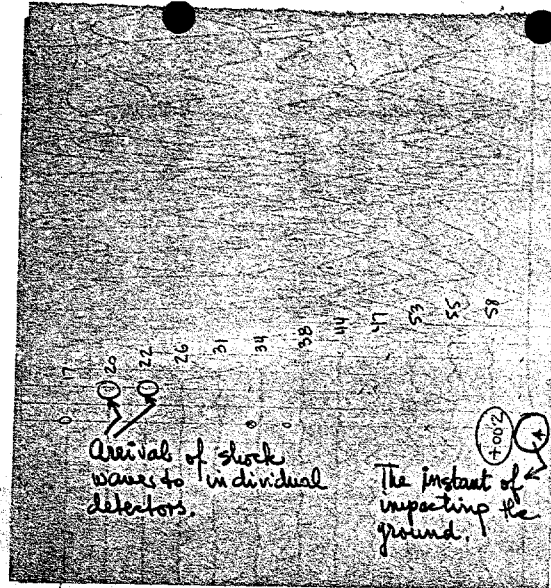 0 17 20 22 26 31 34 38 44 47 53 55 58
Arrival of shock
waves to individual
detectors.
+.002
The instant of
impacting the
ground.